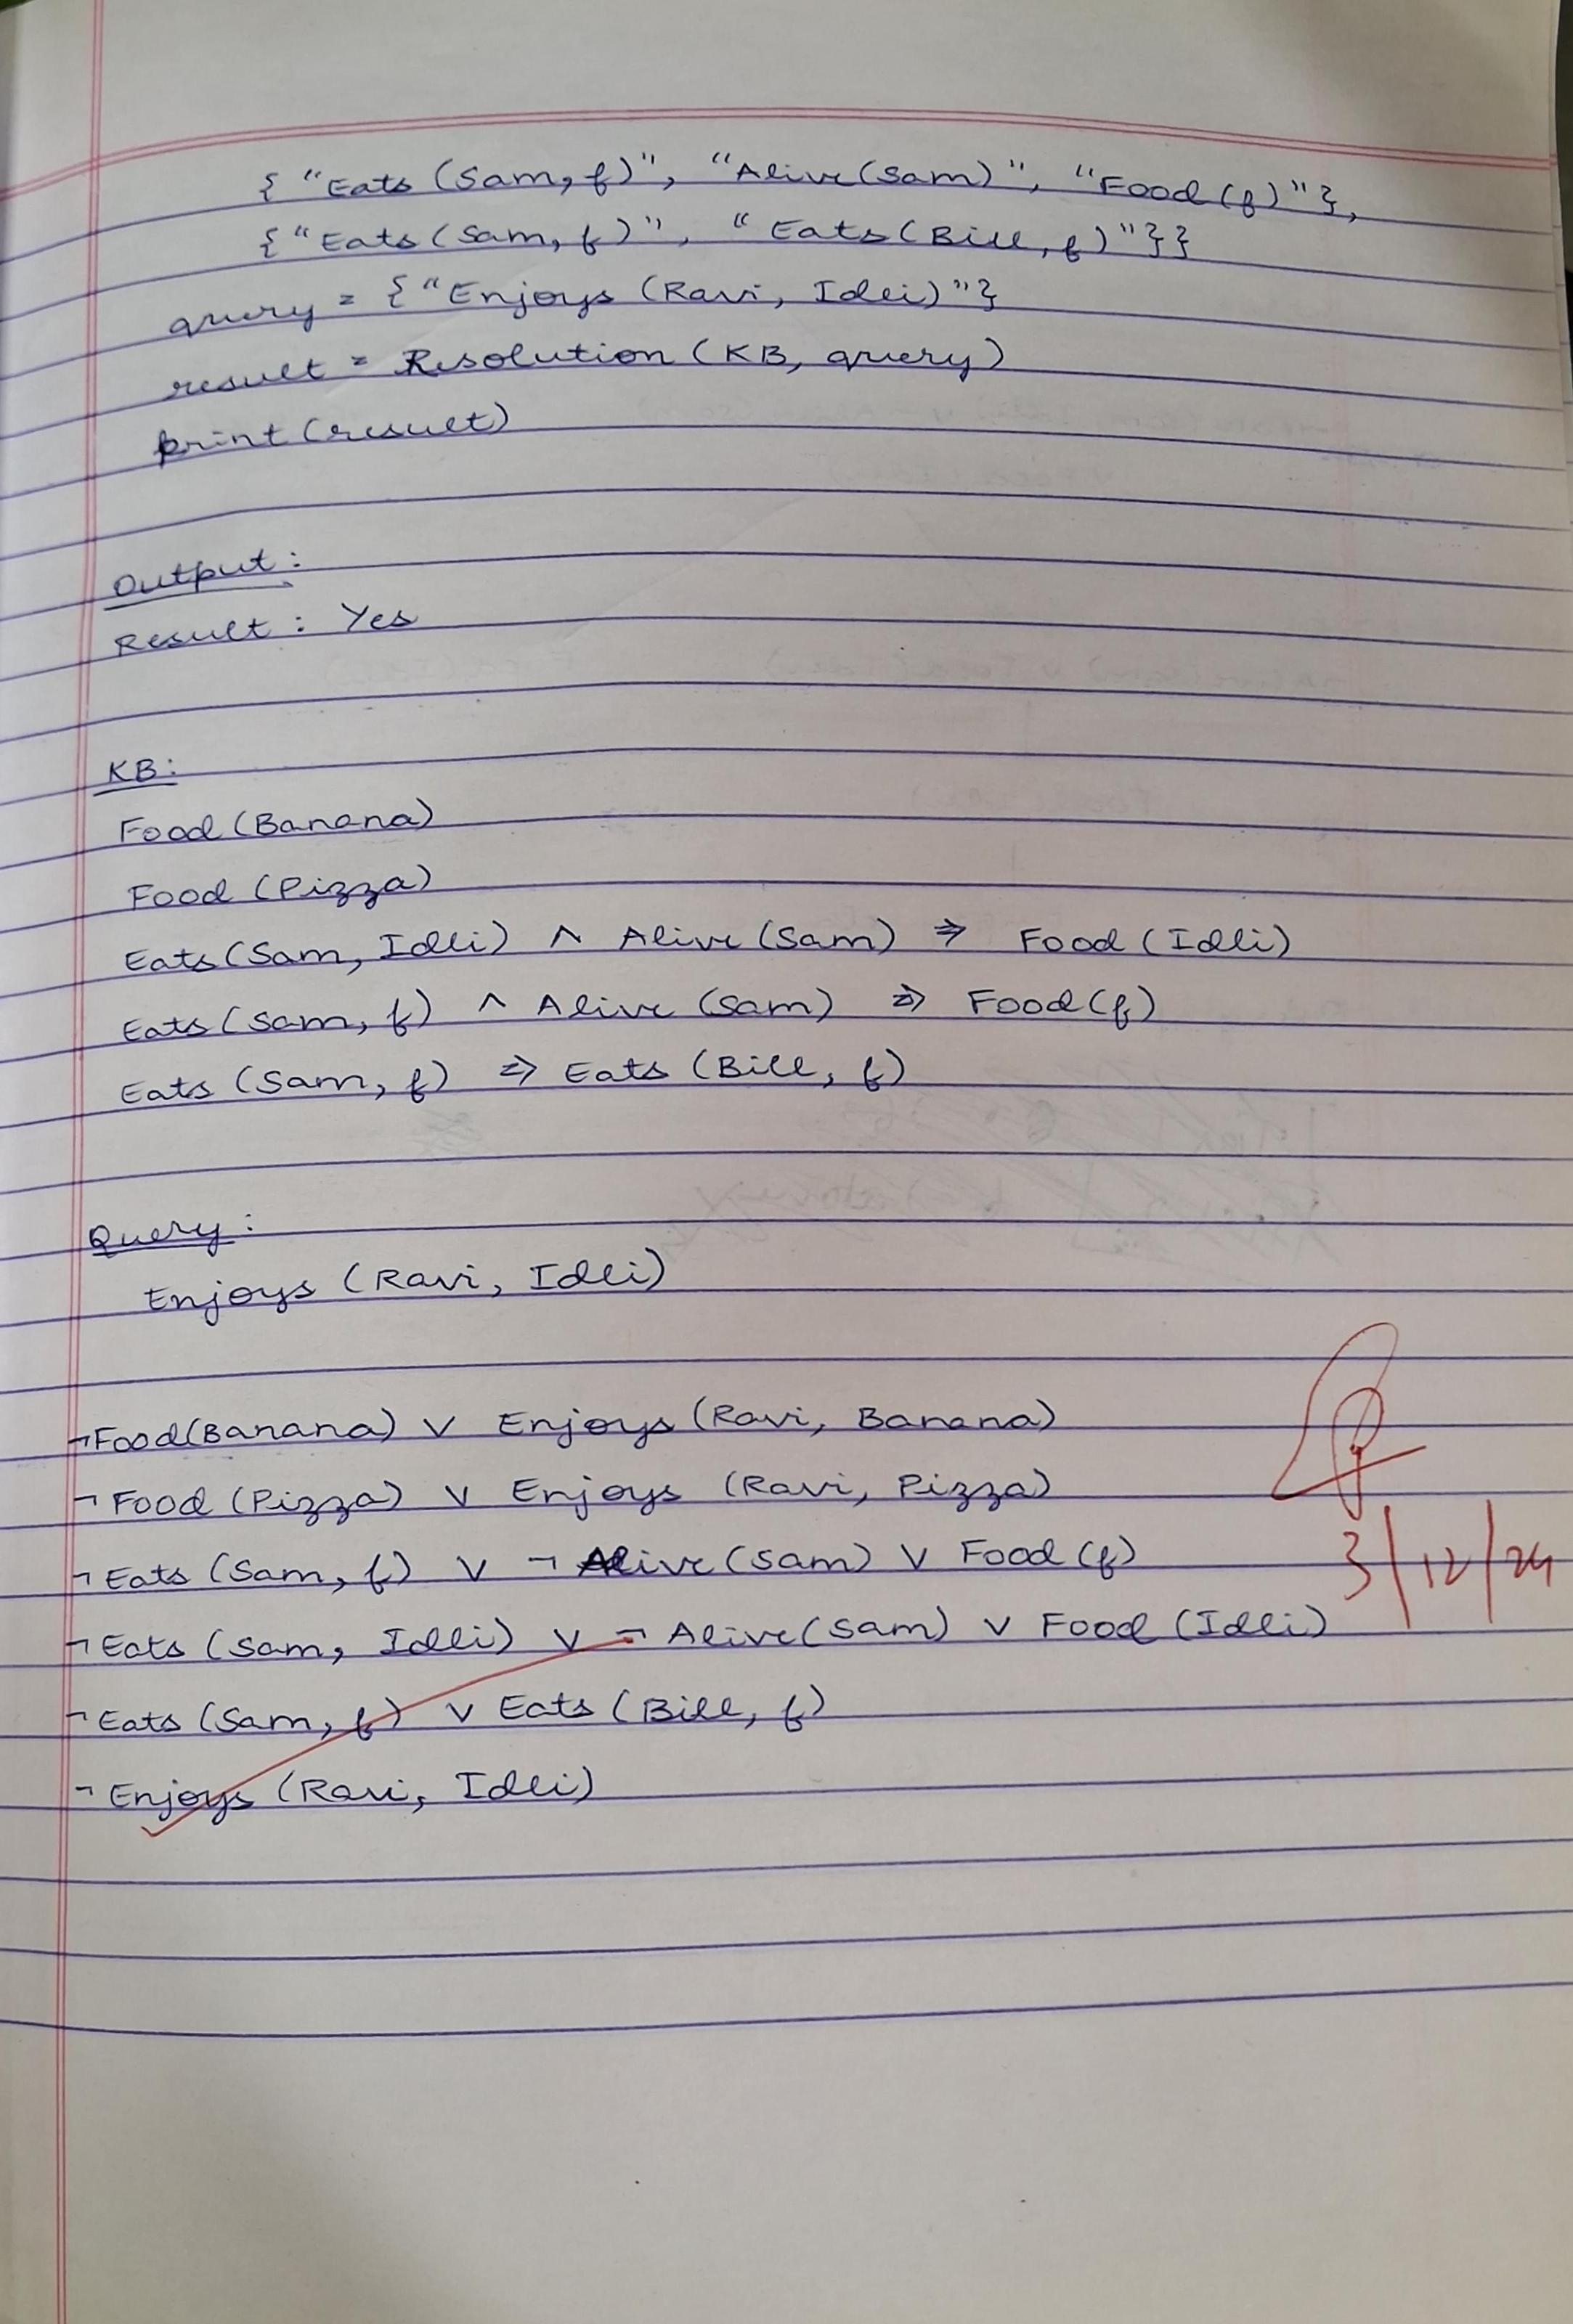 { "Eats (Sam, f)", "Alive(Sam)", "Food (f)"},
{"Eats (Sam, f)", "Eats (Bill, f)"}}
query = {"Enjoys (Ravi, Idli)"}
result = Resolution (KB, query)
print (result)
Output:
Result: Yes
KB:
Food (Banana)
Food (Pizza)
Eats (Sam, Idli) ∧ Alive (Sam) ⇒ Food (Idli)
Eats (Sam, f) ∧ Alive (Sam) ⇒ Food (f)
Eats (Sam, f) ⇒ Eats (Bill, f)
Query:
Enjoys (Ravi, Idli)
¬Food(Banana) ∨ Enjoys (Ravi, Banana)
¬ Food (Pizza) ∨ Enjoys (Ravi, Pizza)
¬ Eats (Sam, f) ∨ ¬ Alive (Sam) ∨ Food (f)
¬ Eats (Sam, Idli) ∨ ¬ Alive (Sam) ∨ Food (Idli)
¬ Eats (Sam, f) ∨ Eats (Bill, f)
¬ Enjoys (Ravi, Idli)
3/12/24